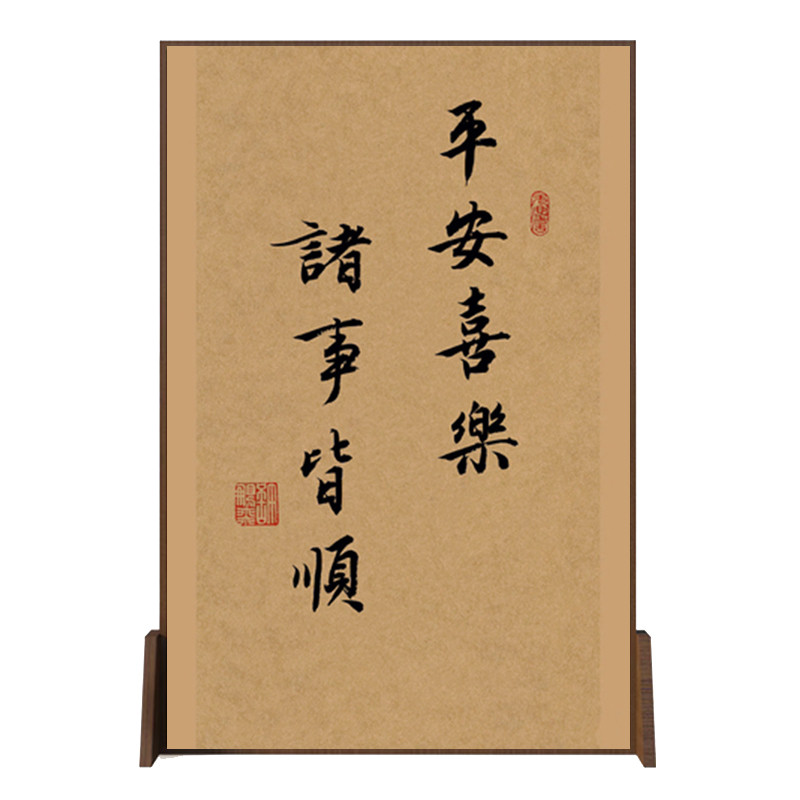 平安喜樂
諸事皆順